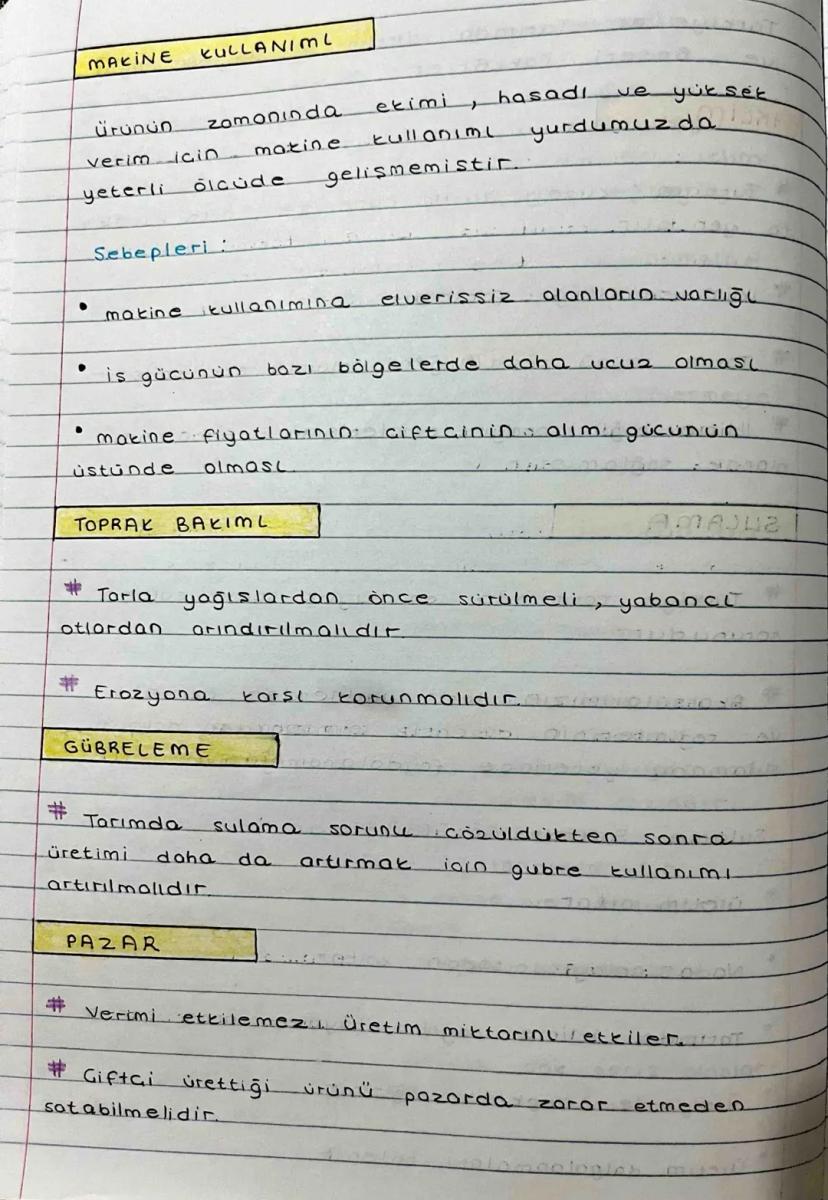 MAKİNE KULLANIMI
ürünün zamanında ekimi , hasadı ve yüksek
verim icin makine kullanımı yurdumuzda
yeterli ölcüde gelişmemistir.
Sebepleri :
• makine kullanımına elverissiz alanların varlığı
• is gücünün bazı bölgelerde daha ucuz olması
• makine fiyatlarının ciftcinin alım gücünün
üstünde olması
TOPRAK BAKIMI
# Tarla yağıslardan önce sürülmeli , yabancı
otlardan arındırılmalıdır.
# Erozyona karsı korunmalıdır.
GÜBRELEME
# Tarımda sulama sorunu cözüldükten sonra
üretimi daha da artırmak icin gubre kullanımı
artırılmalıdır.
PAZAR
# Verimi etkilemez, üretim miktarını etkiler.
# Ciftci ürettiği ürünü pazarda zarar etmeden
satabilmelidir.
SULAMA